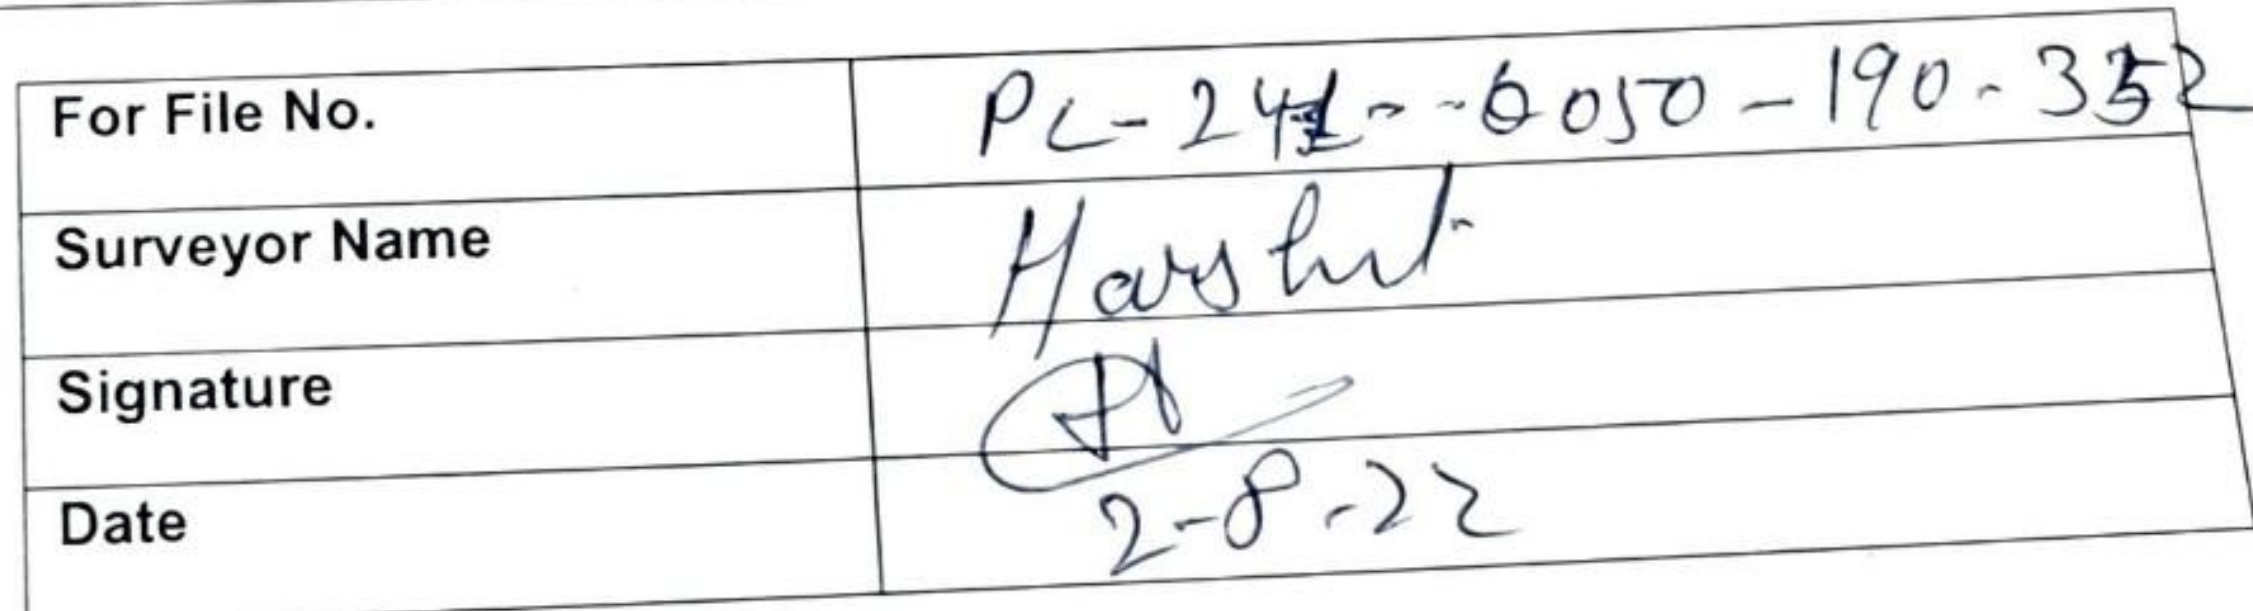 For File No. PL-241--Q050-190-352
Surveyor Name Harshit
Signature
Date 2-8-22